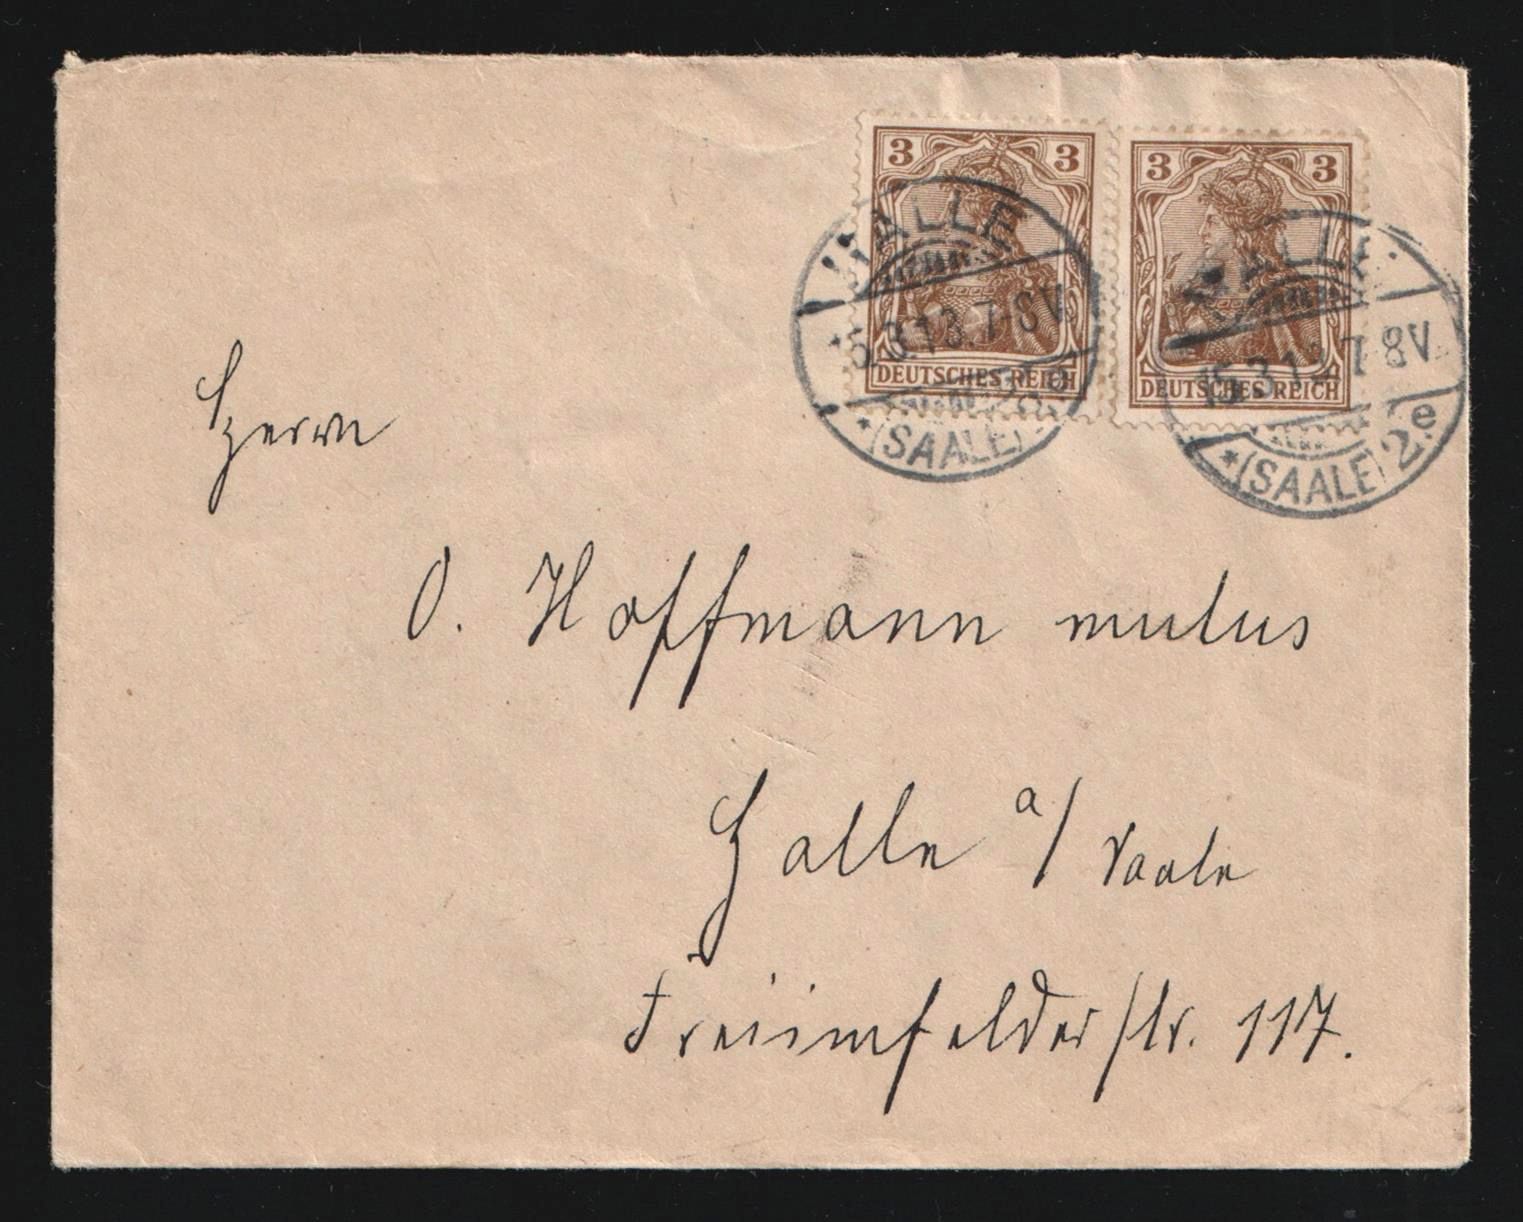 3 3
DEUTSCHES REICH
3 3
DEUTSCHES REICH
HALLE
15.3.13.7-8V.
*(SAALE) 2e
HALLE
15.3.13.7-8V.
*(SAALE) 2e
Herrn
O. Hoffmann mulus
Halle a/Saale
Freiimfelderstr. 117.